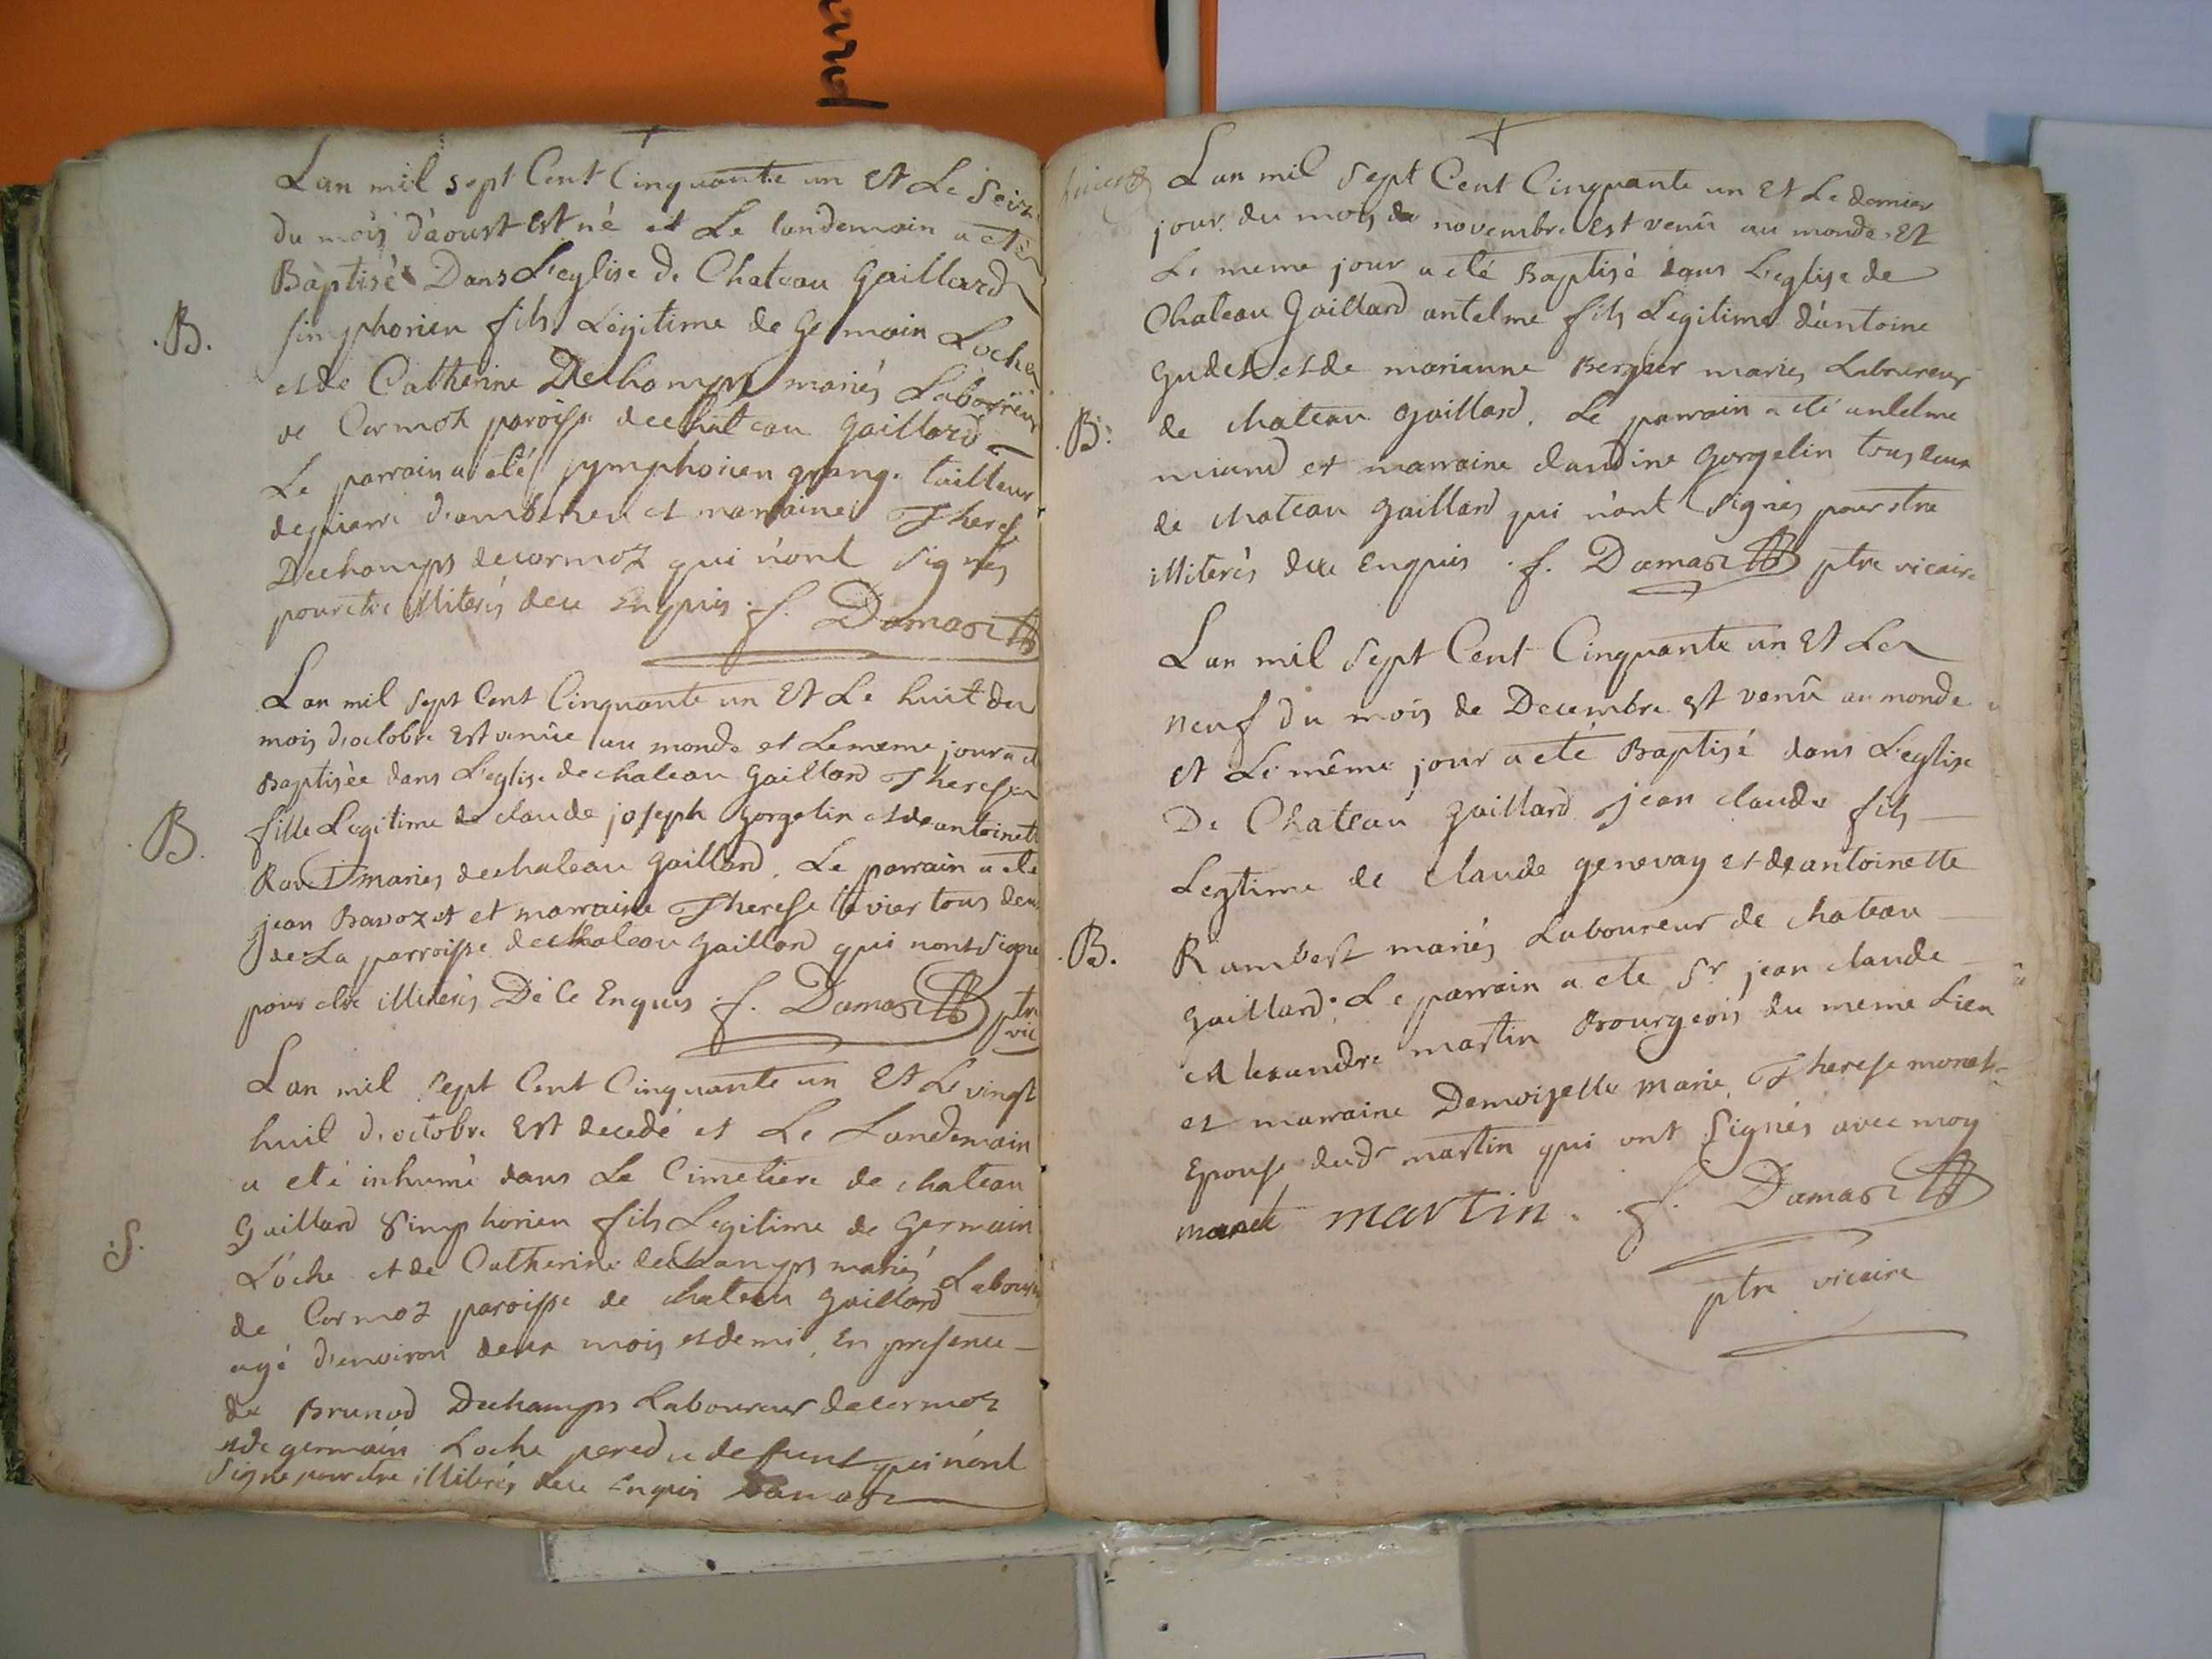 Lan mil sept Cent Cinquante un Et Le Seize
du mois d'aoust Est né et Le landemain a eté
Baptisé Dans L'eglise de Chateau Gaillard
.B.
simphorien fils Légitime de Germain Loche
et de Catherine Dechamps mariés Laboureur
de Cormoz paroisse de chateau Gaillard
Le parrain a eté symphorien grange tailleur
de pierre d'amberieu et marraine Therese
Dechamps de cormoz qui n'ont Signés
pour etre illiterés de ce Enquis . f. Damas
Lan mil Sept Cent Cinquante un Et Le huit du
mois d'octobre Est venüe au monde et Le meme jour a eté
Baptisée dans L'eglise de chateau Gaillard Therese
.B.
fille Legitime de claude joseph Gorgelin et de antoinette
Ravet mariés de chateau Gaillard . Le parrain a eté
jean Bavozet et marraine Therese tous deux
de La parroisse de chateau Gaillard qui nont Signé
pour etre illiterés De Ce Enquis . f. Damas ptre
vic
Lan mil Sept Cent Cinquante un Et Le vingt
huit d'octobre Est decedé et Le Landemain
a eté inhumé dans Le Cimetiere de chateau
Gaillard Simphorien fils Legitime de Germain
.S.
Loche et de Catherine dechamps mariés Laboureur
de Cormoz paroisse de chateau Gaillard
agé d'environ deux mois et demi . En presence
de Brunod Dechamps Laboureur de cormoz
et de germain Loche pere du defunt qui n'ont
Signe pour etre illiterés de ce Enquis Damas
Lan mil Sept Cent Cinquante un Et Le dernier
jour du mois de novembre Est venû au monde Et
Le meme jour a eté Baptisé dans L'eglise de
Chateau Gaillard antelme fils Legitime d'antoine
Gudet et de marianne Bergier mariés Laboureur
.B.
de chateau Gaillard . Le parrain a eté antelme
et marraine claudine Gorgelin tous deux
de chateau Gaillard qui n'ont Signés pour etre
illiterés de ce Enquis . f. Damas ptre vicaire
Lan mil Sept Cent Cinquante un Et Le
neuf du mois de Decembre est venû au monde
et Le même jour a eté Baptisé dans L'eglise
De Chateau Gaillard jean claude fils
Legtime de claude genevay et de antoinette
.B.
Rambert mariés Laboureur de chateau
Gaillard . Le parrain a ete Sr jean claude
Alexandre martin Bourgeois du meme Lieu
et marraine Demoiselle marie Therese
Epouse dudt martin qui ont Signés avec moy
martin . f. Damas
ptre vicaire